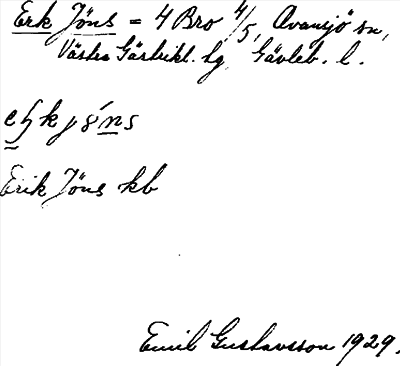 Erk Jöns = 4 Bro 4/5, Ovansjö sn,
Västra Gästrikl. hg, Gävleb. l.
Erik Jöns kb
Emil Gustavsson 1929.